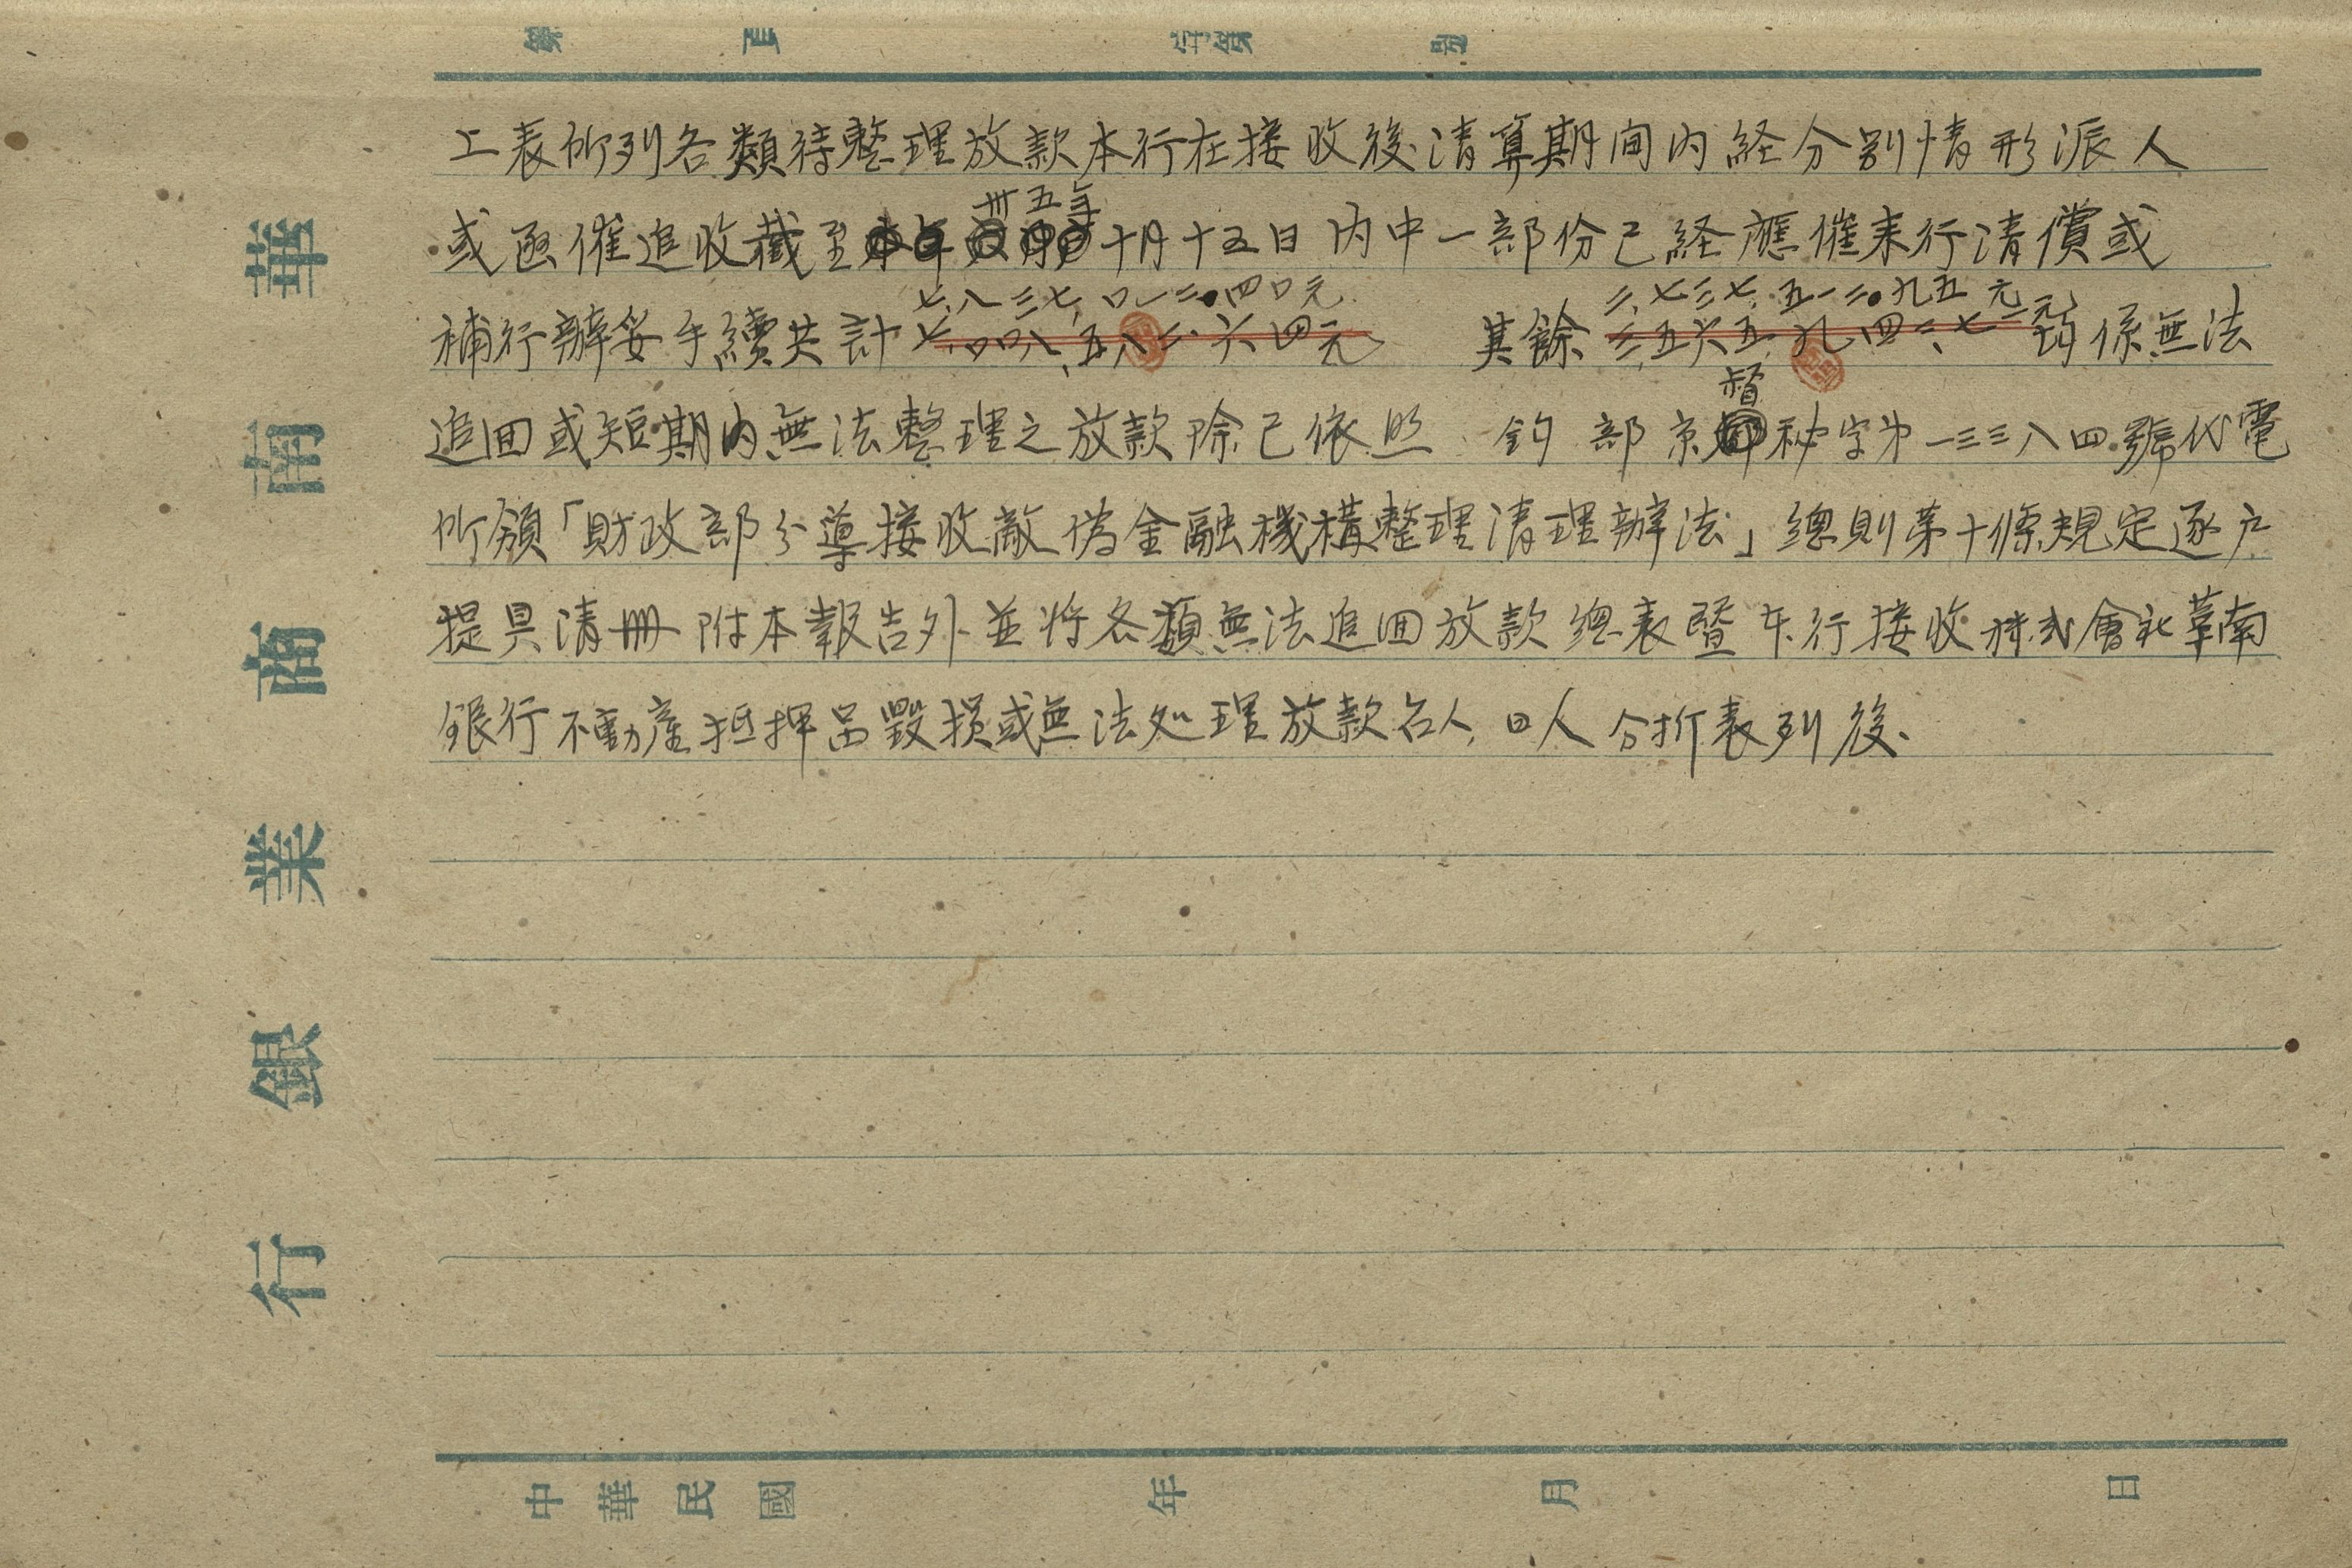 第 頁 字第 號
上表所列各類待整理放款本行在接收後清算期间内経分别情形派人
卅五年
或函催追收截至十月十五日内中一部份已経應催来行清償或
七,八三七,〇一三.四〇元 三,七三七,五一三.九五元
補行辦妥手續共計七,〇四八,五八三.六四元 其餘三,五六五,九四三.七一元 均係無法
督
追回或短期内無法整理之放款除已依照 鈞部京秘字第一三三八四號代電
所頒「財政部分導接收敵偽金融機構整理清理辦法」總則第十條規定逐户
提具清冊附本報告外並将各類無法追回放款總表暨本行接收株式會社華南
銀行不動產抵押品毀損或無法処理放款台人,日人分折表列後、
華南商業銀行
中華民國 年 月 日